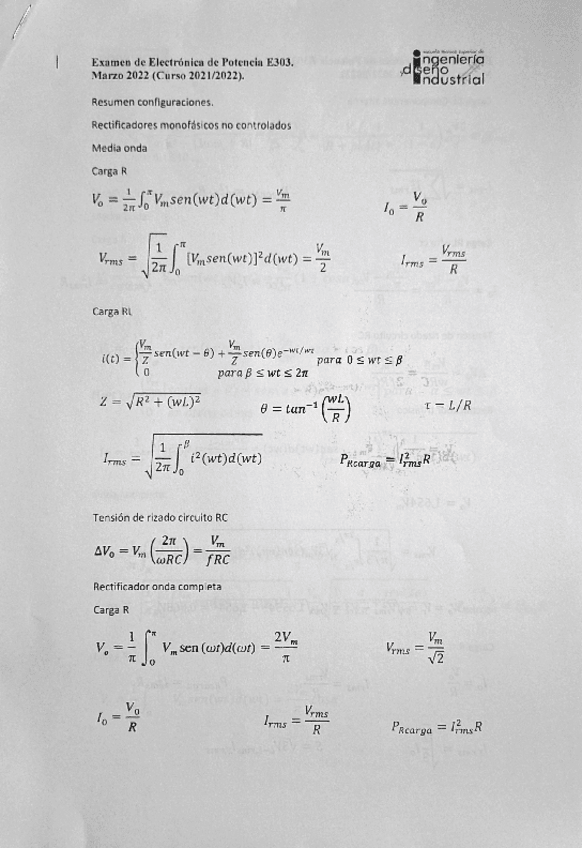 Examen de Electrónica de Potencia E303.
Marzo 2022 (Curso 2021/2022).
ingeniería
diseño
industrial
Resumen configuraciones.
Rectificadores monofásicos no controlados
Media onda
Carga R
V₀ = 1/2π ∫₀^π Vₘsen(wt)d(wt) = Vₘ/π    I₀ = V₀/R
Vᵣₘₛ = √(1/2π ∫₀^π [Vₘsen(wt)]²d(wt)) = Vₘ/2    Iᵣₘₛ = Vᵣₘₛ/R
Carga RL
i(t) = { Vₘ/Z sen(wt − θ) + Vₘ/Z sen(θ)e^(−wt/wτ)   para 0 ≤ wt ≤ β
0   para β ≤ wt ≤ 2π
Z = √(R² + (wL)²)    θ = tan⁻¹(wL/R)    τ − L/R
Iᵣₘₛ = √(1/2π ∫₀^β i²(wt)d(wt))    P_Rcarga = I²ᵣₘₛR
Tensión de rizado circuito RC
ΔV₀ = Vₘ(2π/ωRC) = Vₘ/fRC
Rectificador onda completa
Carga R
Vₒ = 1/π ∫₀^π Vₘ sen (ωt)d(ωt) = 2Vₘ/π    Vᵣₘₛ = Vₘ/√2
I₀ = V₀/R    Iᵣₘₛ = Vᵣₘₛ/R    P_Rcarga = I²ᵣₘₛR